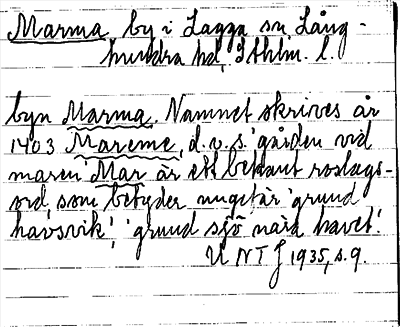 Marma, by i Lagga sn, Lång-
hundra hd, Sthlm. l.
byn Marma. Namnet skrives år
1403 Mareme, d.v.s. 'gården vid
maren'. Mar är ett bekant roslags-
ord, som betyder ungefär 'grund
havsvik', 'grund sjö nära havet'.
UNTJ 1935, s. 9.